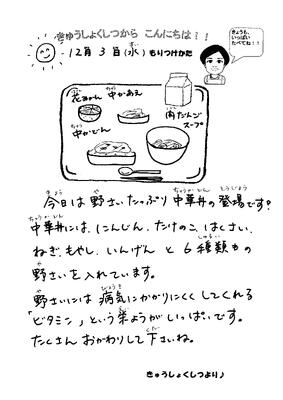 きゅうしょくしつから こんにちは!!
きょうも、
いっぱい
たべてね!!
12月 3日(水)もりつけかた
花みかん
中かあえ
肉だんご
スープ
中かどん
今日は野さいたっぷり中華丼の登場です!
中華丼には、にんじん、たけのこ、はくさい、
ねぎ、もやし、いんげん と 6種類もの
野さいを入れています。
野さいには 病気にかかりにくくしてくれる
「ビタミン」という栄ようがいっぱいです。
たくさん おかわりして下さいね。
きゅうしょくしつより♪